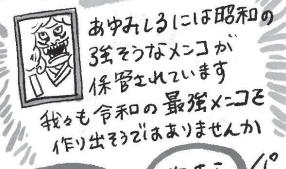 あゆみしるには昭和の
強そうなメンコが
保管されています
我々も令和の最強メンコを
作り出そうではありませんか